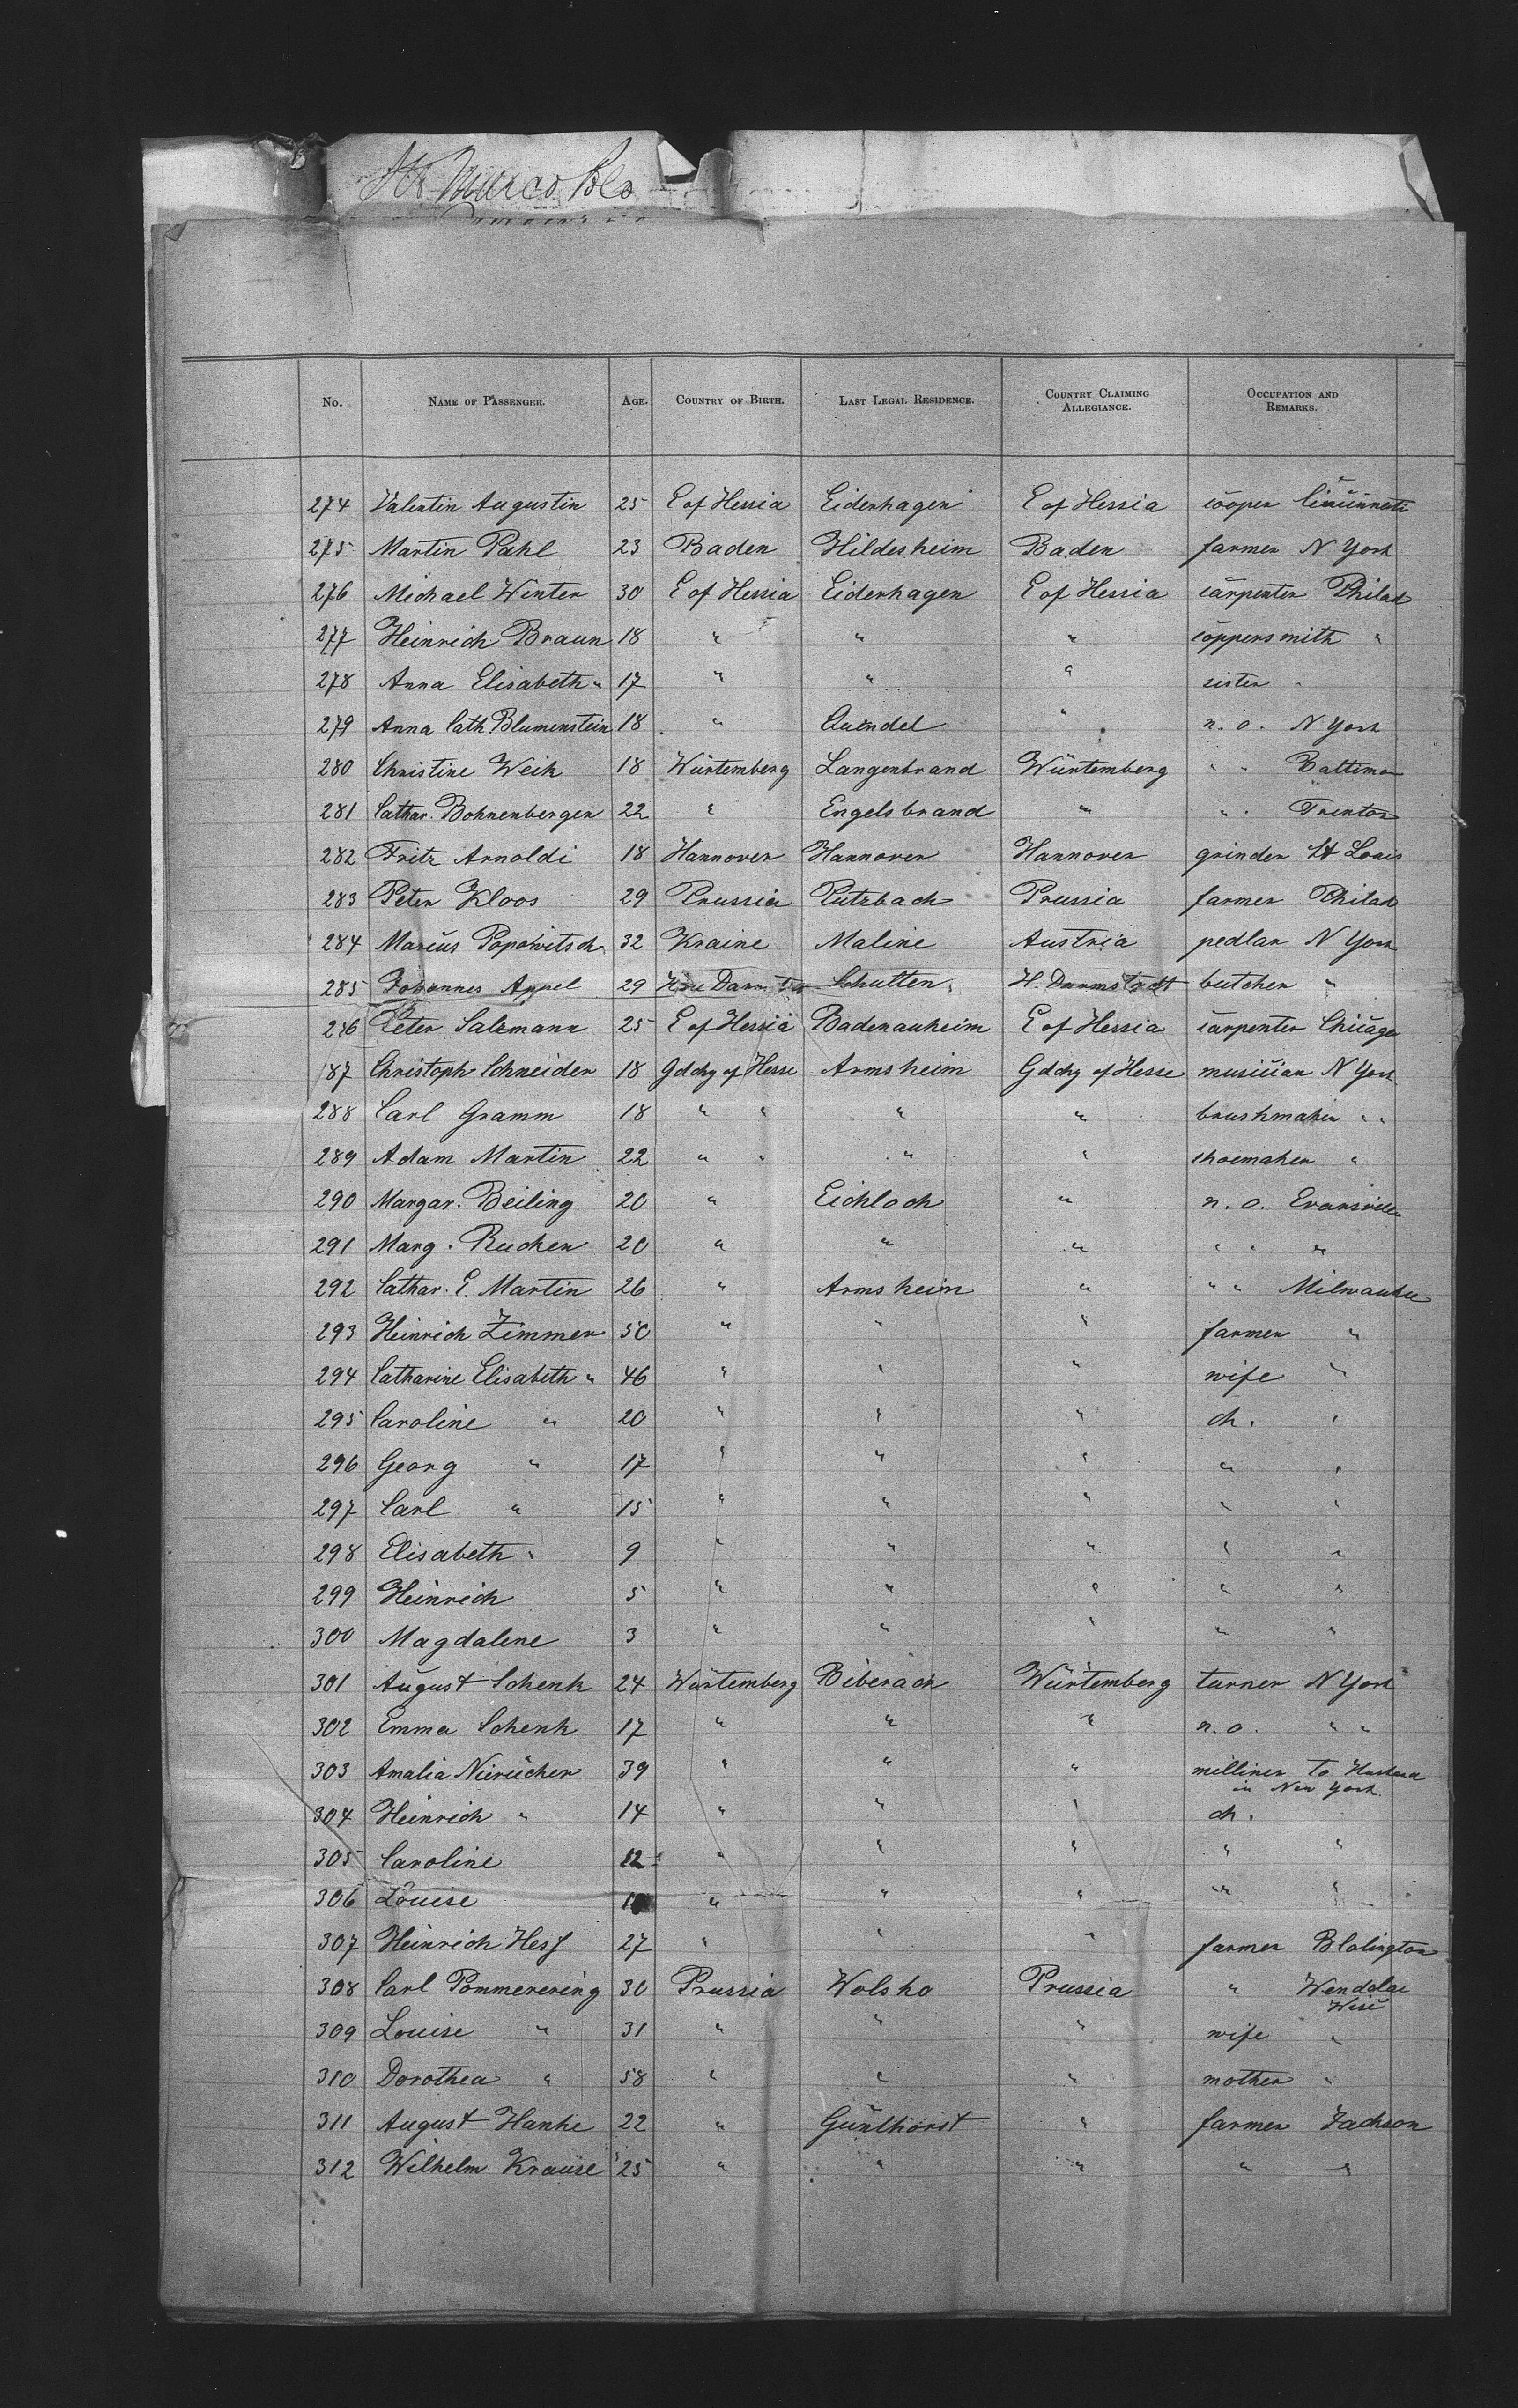 No. NAME OF PASSENGER. AGE. COUNTRY OF BIRTH. LAST LEGAL RESIDENCE. COUNTRY CLAIMING ALLEGIANCE. OCCUPATION AND REMARKS.
274 Valentin Augustin 25 E of Hessia Eidenhagen E of Hessia cooper Cincinnati
275 Martin Pahl 23 Baden Hildesheim Baden farmer N York
276 Michael Winter 30 E of Hessia Eidenhagen E of Hessia carpenter Philad
277 Heinrich Braun 18 " " " coppersmith "
278 Anna Elisabeth " 17 " " " sister "
279 Anna Cath Blumenstein 18 " " n. o. N York
280 Christine Weik 18 Würtemberg Langenbrand Würtemberg " " Baltimor
281 Cathar. Bohnenberger 22 " Engelsbrand " " " Trenton
282 Fritz Arnoldi 18 Hannover Hannover Hannover grinder St Louis
283 Peter Kloos 29 Prussia Putzbach Prussia farmer Philad
284 Marcus Popowitsch 32 Kraine Maline Austria pedlar N York
285 Johannes Appel 29 Schutten H. Darmstadt butcher "
286 Peter Salzmann 25 E of Hessia Badenauheim E of Hessia carpenter Chicago
187 Christoph Schneider 18 Gdchy of Hesse Armsheim Gdchy of Hesse musician N York
288 Carl Gramm 18 " " " " brushmaker " "
289 Adam Martin 22 " " " " shoemaker "
290 Margar. Beiling 20 " Eichloch " n. o. Evansville
291 Marg. Rucker 20 " " " " " "
292 Cathar. E. Martin 26 " Armsheim " " " Milwaukee
293 Heinrich Zimmer 50 " " " farmer "
294 Catharine Elisabeth " 46 " " " wife "
295 Caroline " 20 " " " ch. "
296 Georg " 17 " " " " "
297 Carl " 15 " " " " "
298 Elisabeth " 9 " " " " "
299 Heinrich 5 " " " " "
300 Magdalene 3 " " " " "
301 August Schenk 24 Würtemberg Biberach Würtemberg turner N York
302 Emma Schenk 17 " " " n. o. " "
303 Amalia 39 " " " milliner to Husband
in New York
304 Heinrich " 14 " " " ch.
305 Caroline 12 " " " " "
306 Louise " " " " "
307 Heinrich Hess 27 " " " farmer Blolington
308 Carl Pommerering 30 Prussia Wolsko Prussia "
309 Louise " 31 " " " wife "
310 Dorothea " 58 " " " mother "
311 August Hanke 22 " Günthorst " farmer Jackson
312 Wilhelm Krause 25 " " " " "